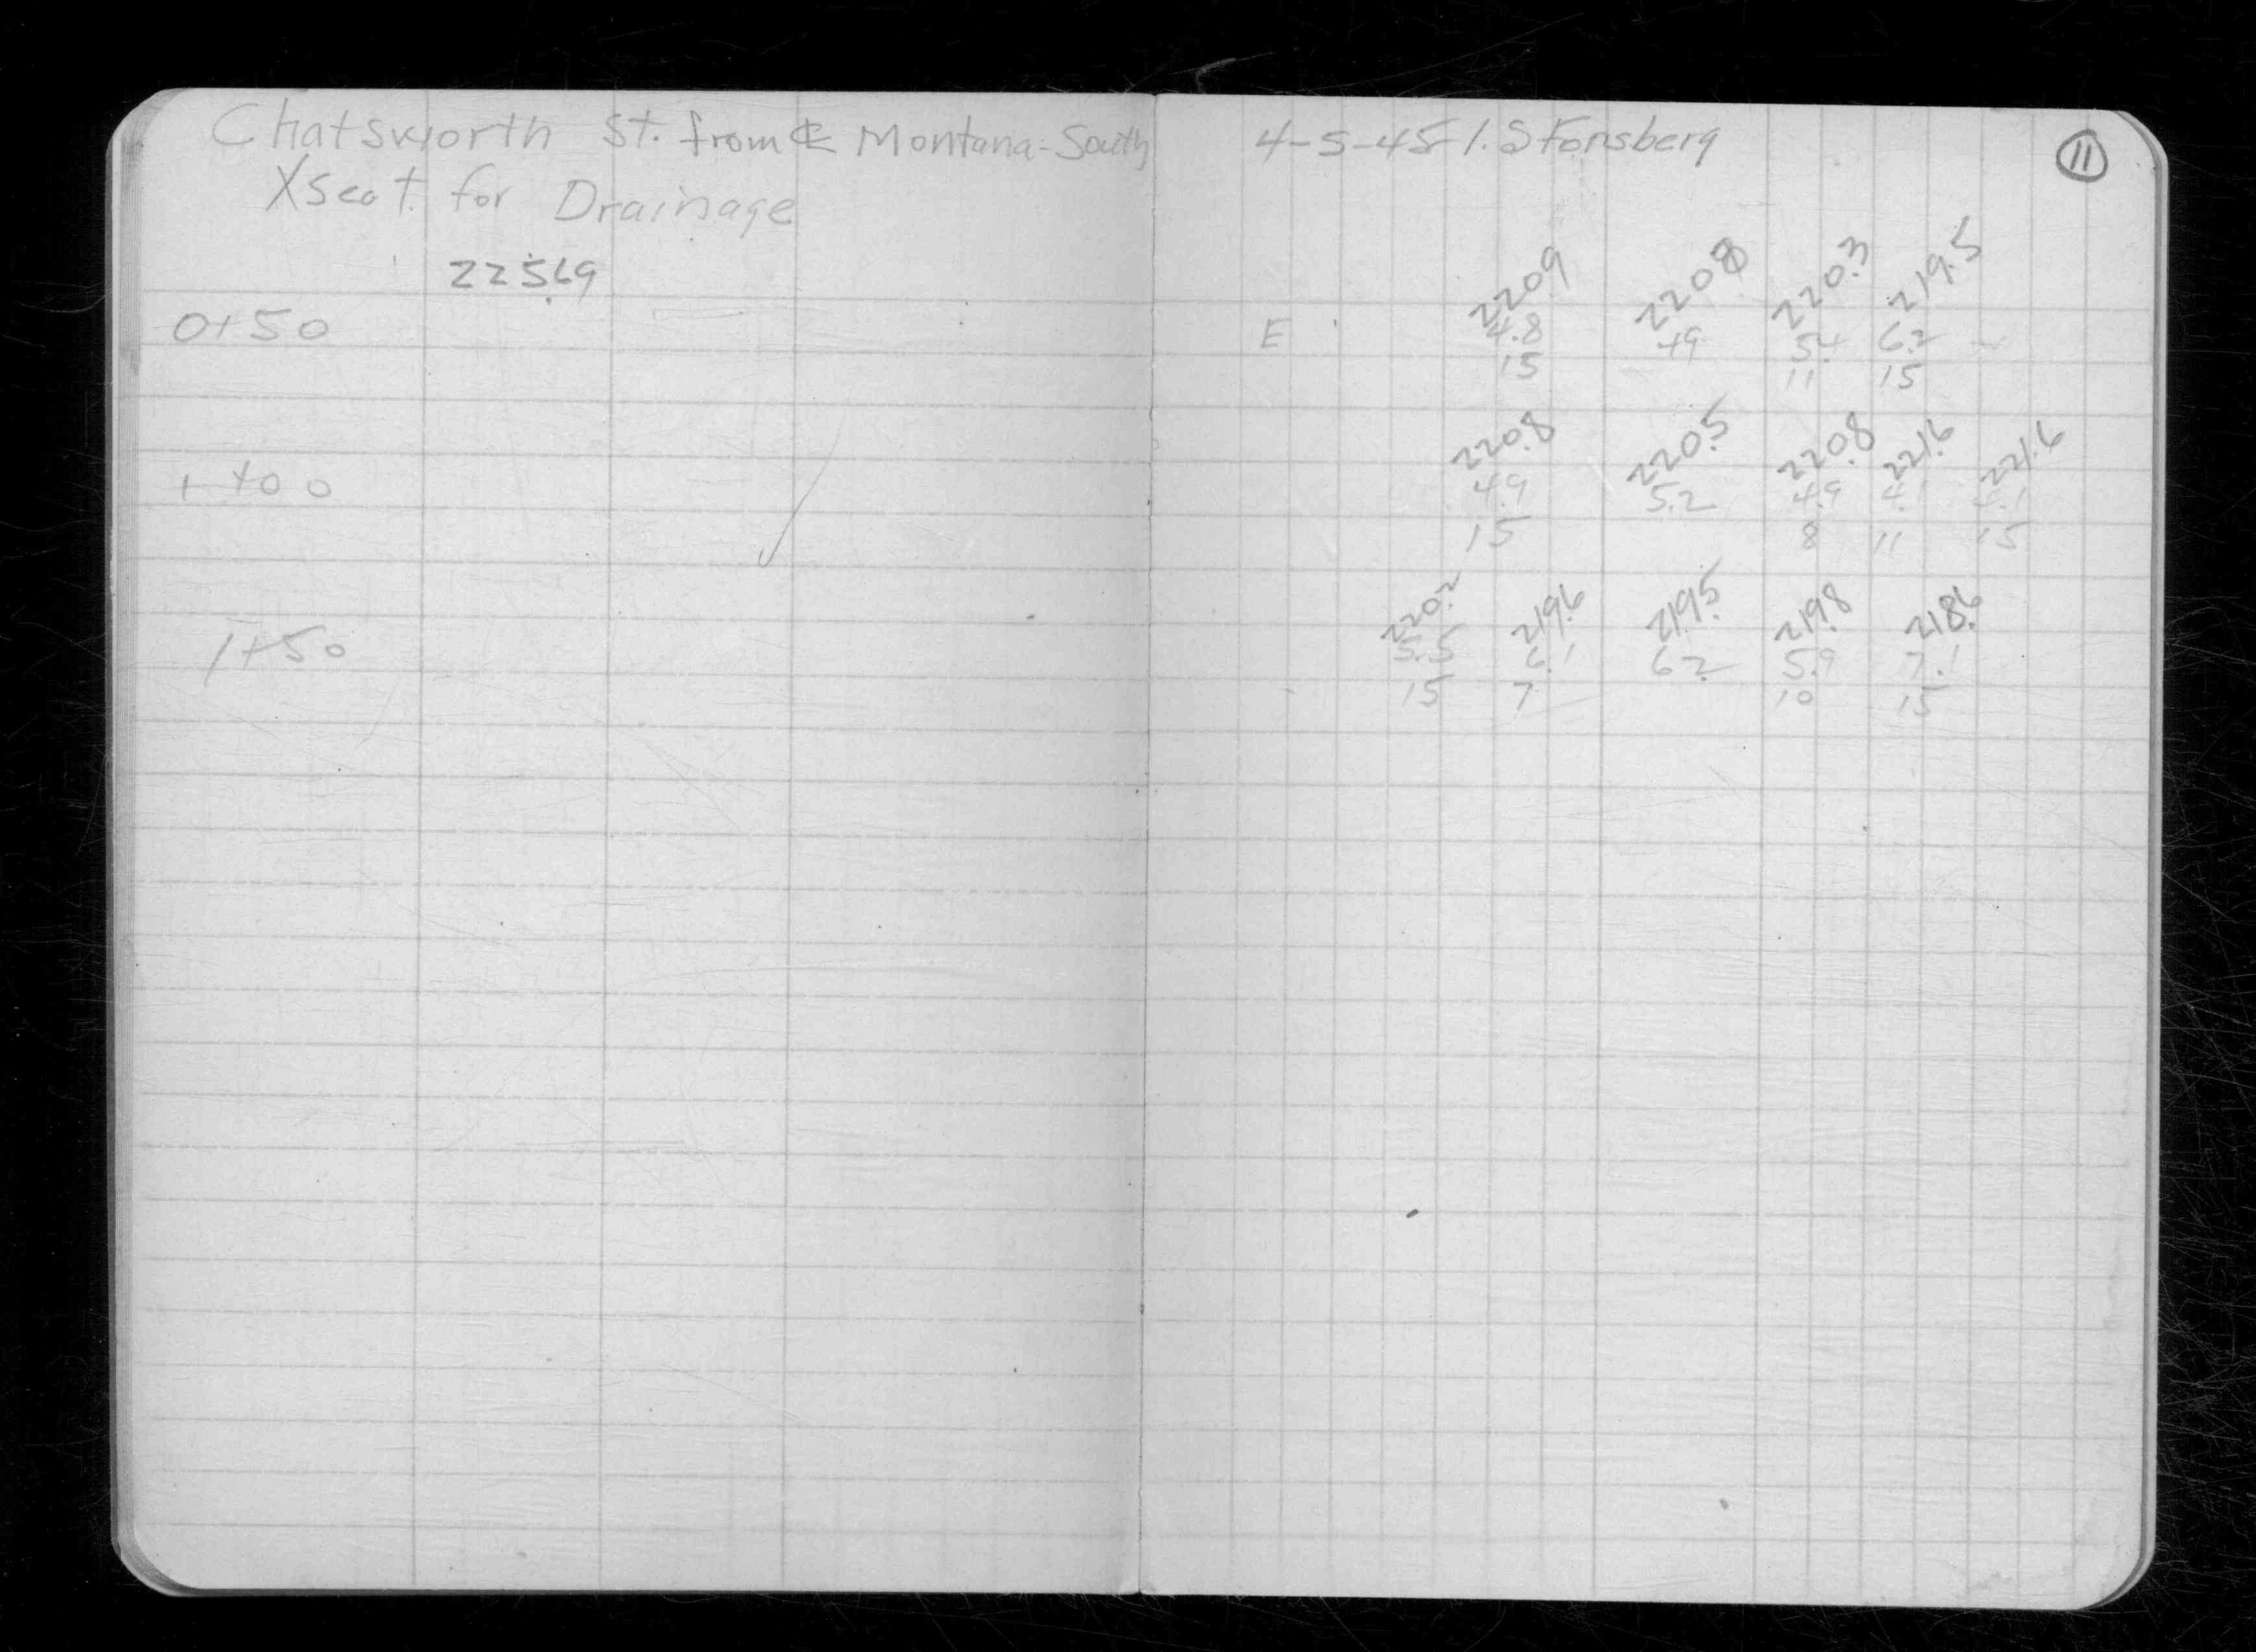 Chatsworth St. from ℄ Montana-South
Xsect. for Drainage
225.69
0+50
1+00
1+50
4-5-45 I. S Fonsberg
11
220.9 220.8 220.3 219.5
E 4.8 4.9 5.4 6.2
15 11 15
220.8 220.5 220.8 221.6 221.6
4.9 5.2 4.9 4.1 4.1
15 8 11 15
220.2 219.6 219.5 219.8 218.6
5.5 6.1 6.2 5.9 7.1
15 7 10 15